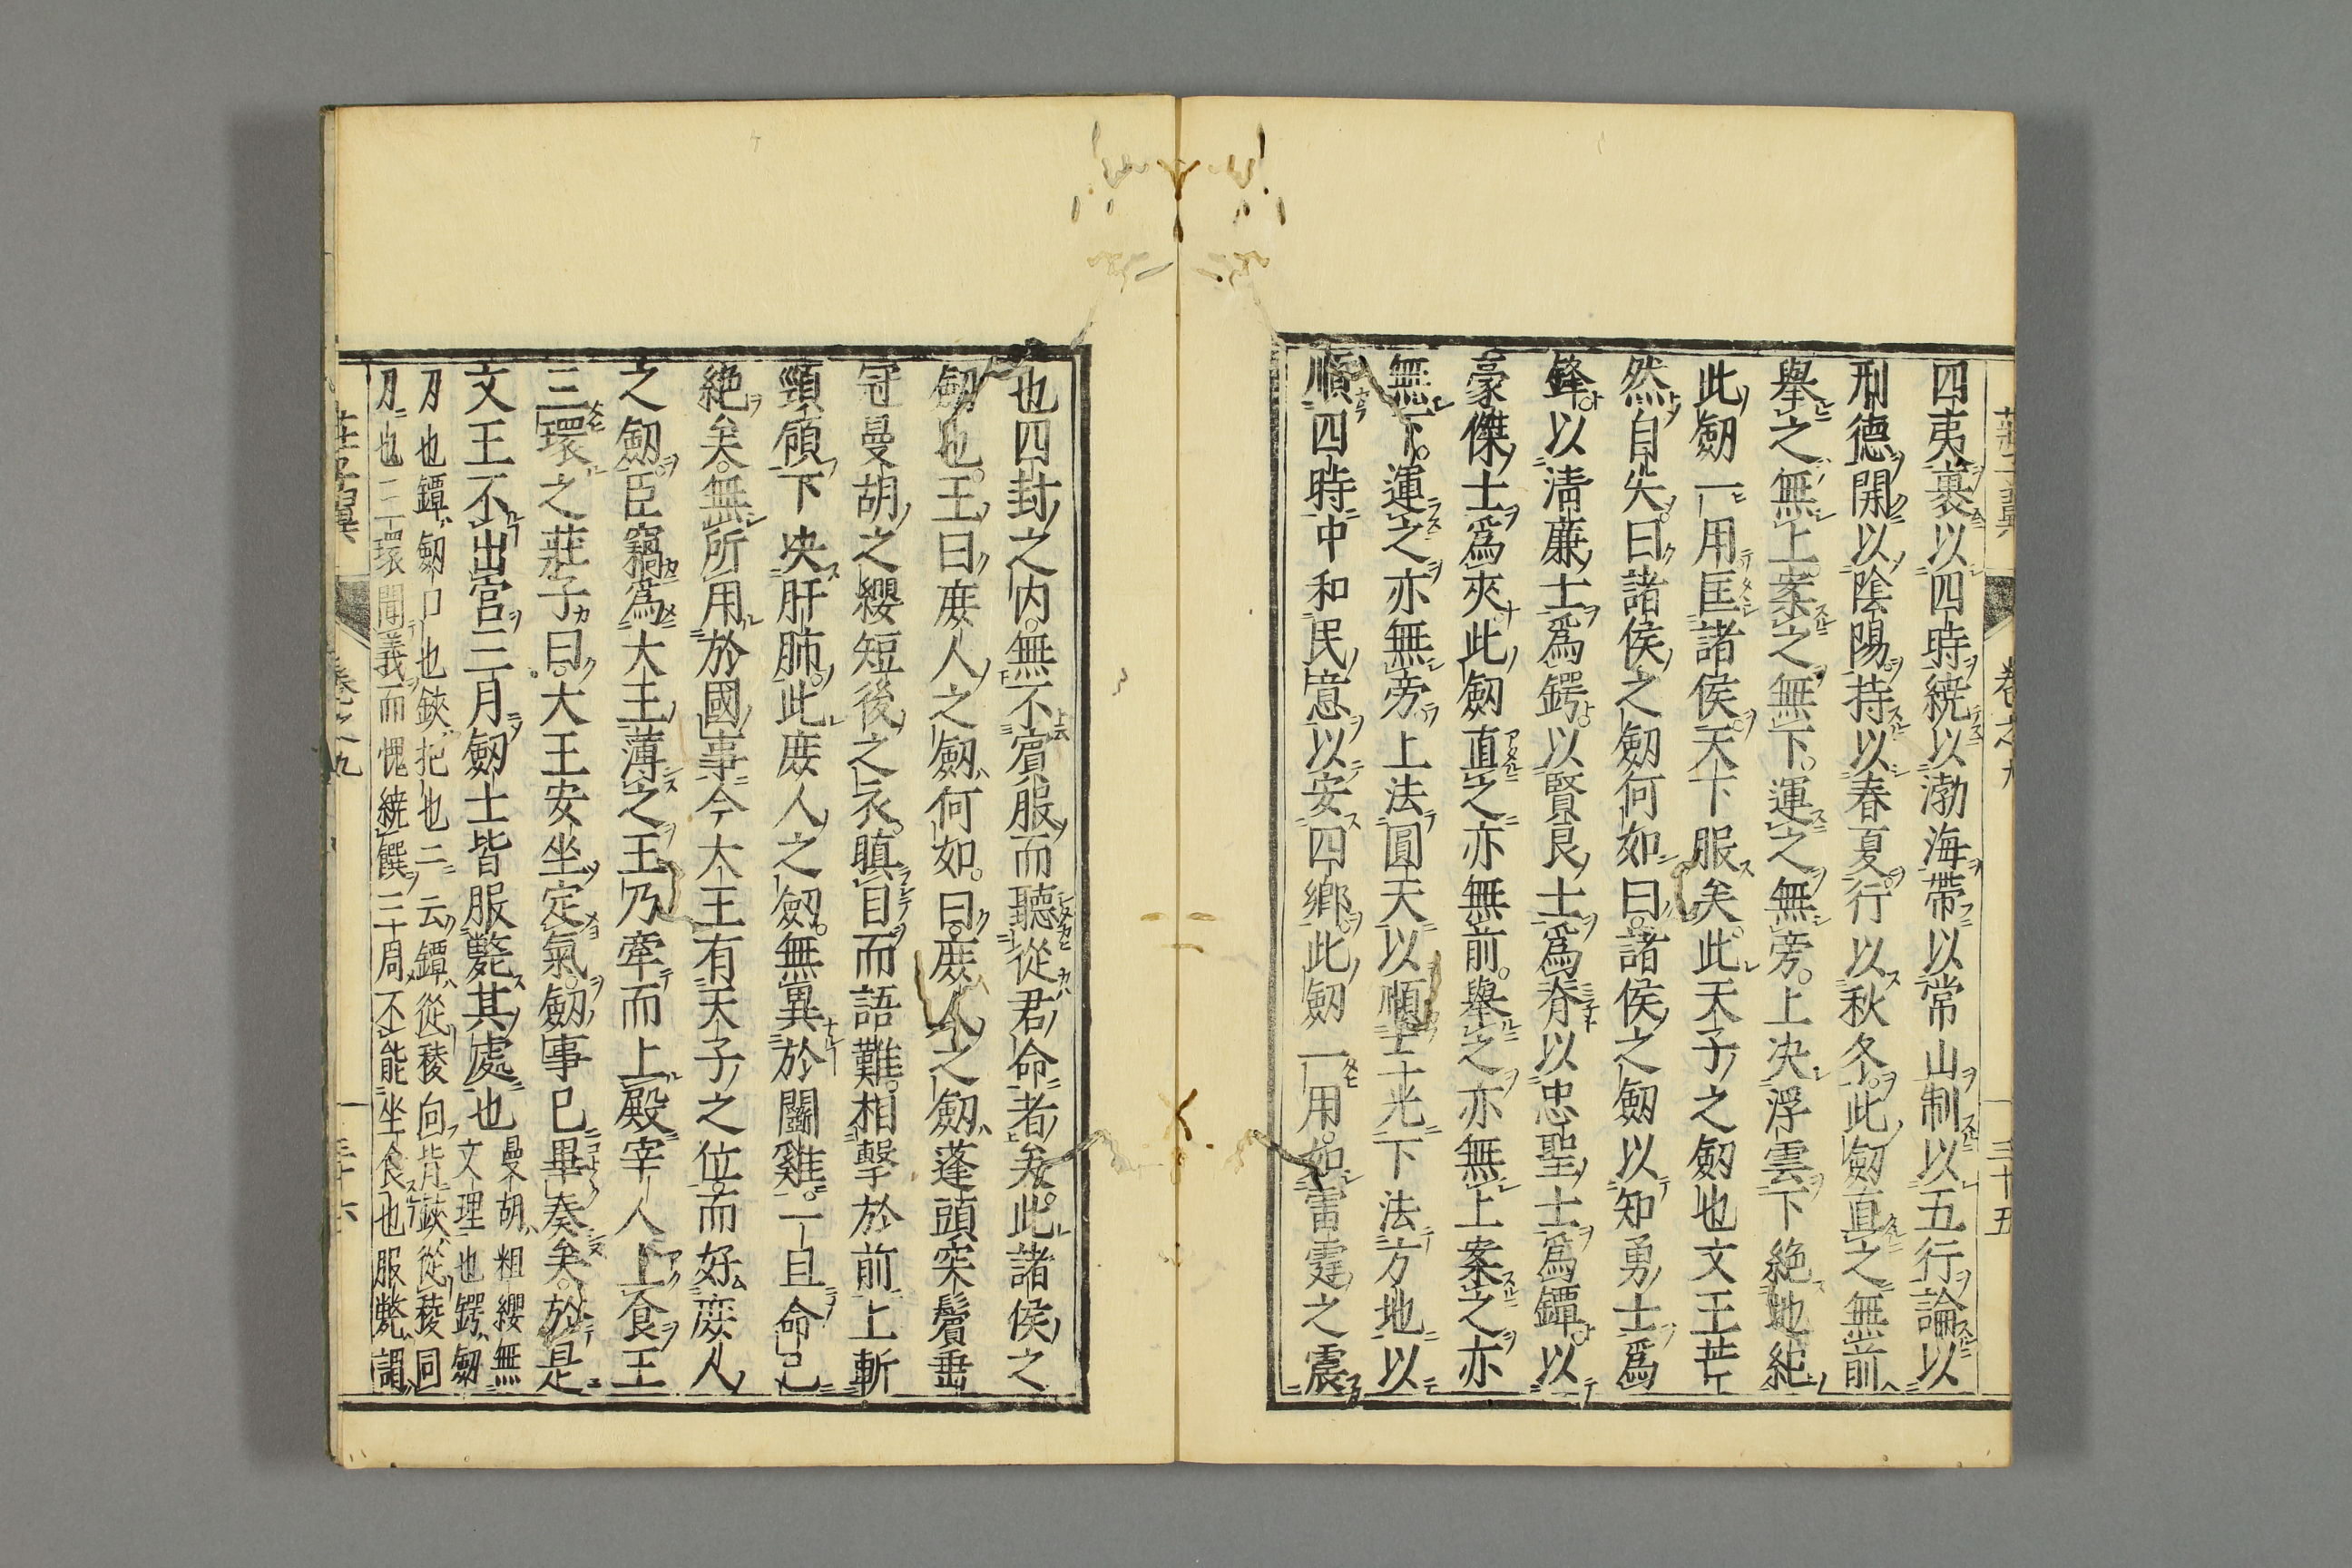 四夷裹以四時繞以渤海帶以常山制以五行論以
刑德開以陰陽持以春夏行以秋冬此劒直之無前
舉之無上案之無下運之無旁上决浮雲下絶地紀
此劒一用匡諸侯天下服矣此天子之劒也文王芒
然自失曰諸侯之劒何如曰諸侯之劒以知勇士爲
鋒以淸廉士爲鍔以賢良士爲脊以忠聖士爲鐔以
豪傑士爲夾此劒直之亦無前舉之亦無上案之亦
無下運之亦無旁上法圓天以順三光下法方地以
順四時中和民意以安四鄉此劒一用如雷霆之震
也四封之内無不賓服而聽從君命者矣此諸侯之
劒也王曰庶人之劒何如曰庶人之劒蓬頭突鬢垂
冠曼胡之纓短後之衣瞋目而語難相擊於前上斬
頸領下决肝肺此庶人之劒無異於鬭雞一旦命已
絶矣無所用於國事今大王有天子之位而好庶人
之劒臣竊爲大王薄之王乃牽而上殿宰人上食王
三環之莊子曰大王安坐定氣劒事已畢奏矣於是
文王不出宮三月劒士皆服斃其處也
曼胡粗纓無
文理也鍔劒
刀也鐔劒口也鋏把也二云鐔從稜向背鋏從稜向
刀也三環聞義而愧繞饌三周不能坐食也服斃謂
莊子翼
卷之九
三十五
莊子翼
卷之九
三十六